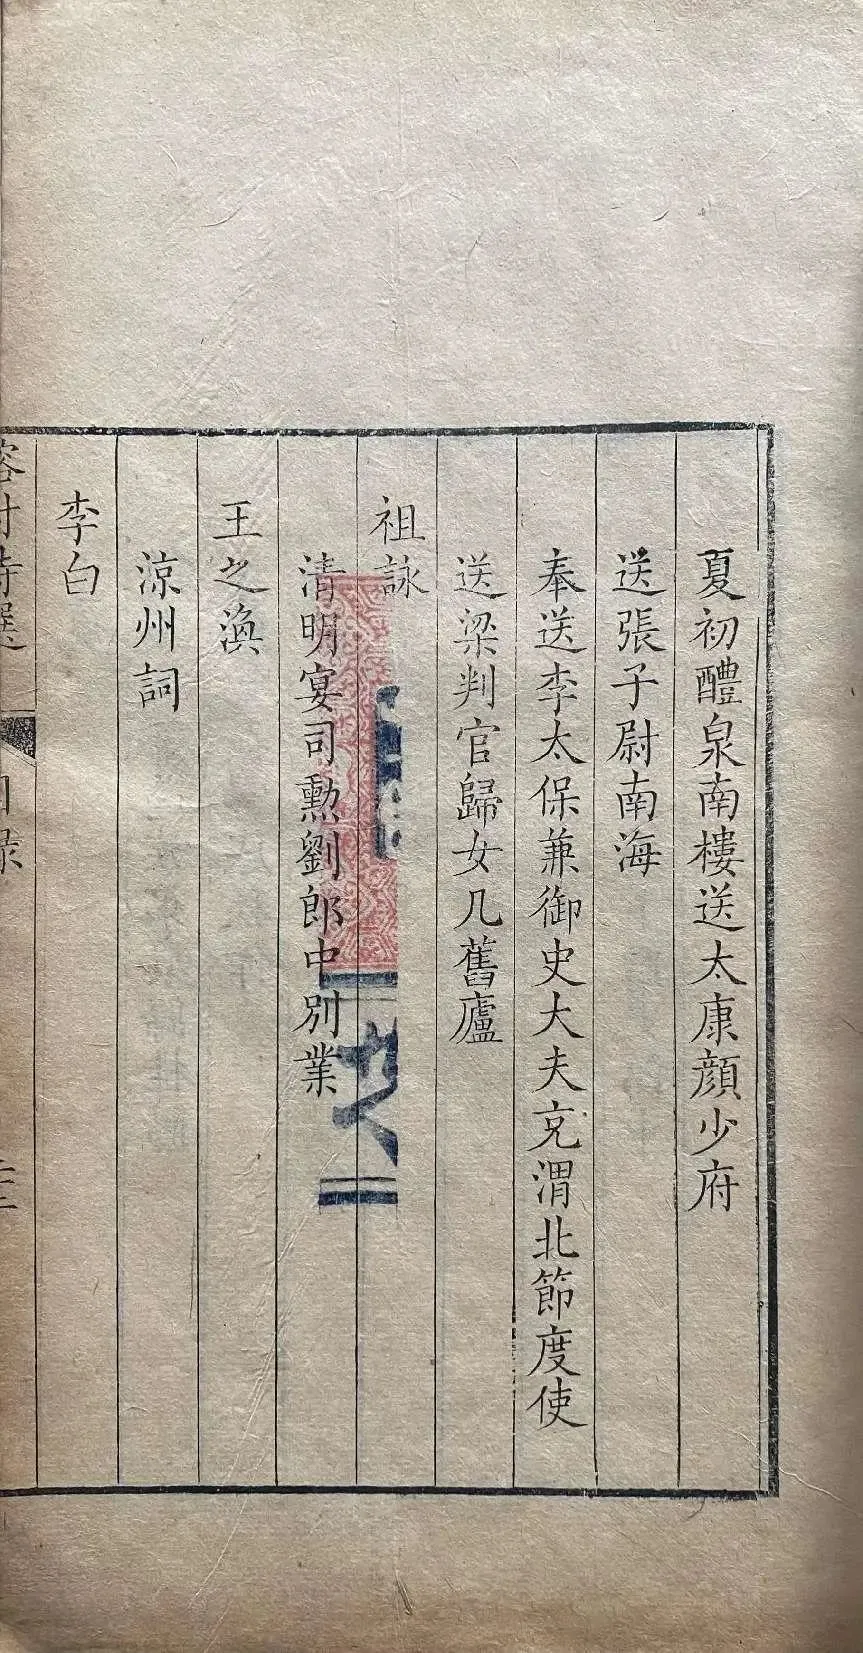 夏初醴泉南樓送太康顔少府
送張子尉南海
奉送李太保兼御史大夫充渭北節度使
送梁判官歸女几舊廬
祖詠
清明宴司勲劉郎中別業
王之渙
涼州詞
李白
榕村詩選 目錄